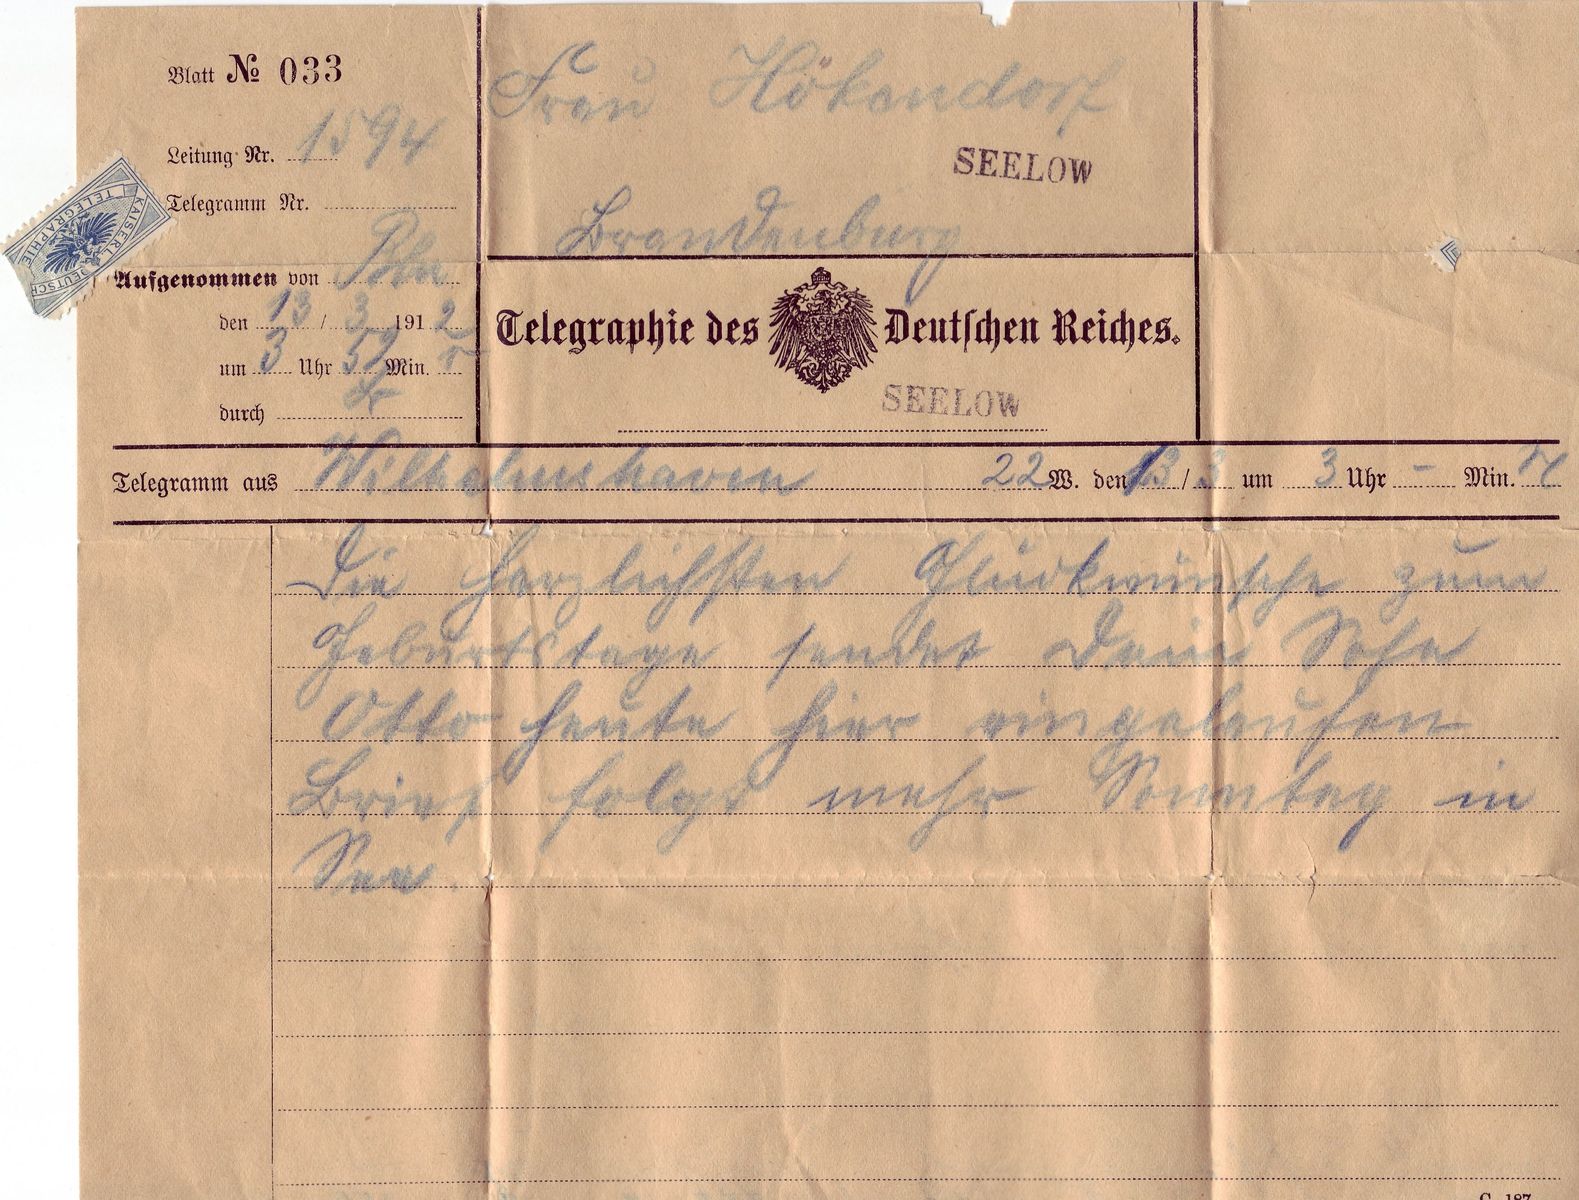 Blatt № 033
Leitung Nr. 1594
Telegramm Nr.
Aufgenommen von Bln
den 13 / 3 1912
um 3 Uhr 59 Min.
durch
KAISERL. DEUTSCHE
TELEGRAPHIE
Frau Hökendorf
SEELOW
Brandenburg
Telegraphie des Deutschen Reiches.
SEELOW
Telegramm aus Wilhelmshaven 22 W. den 13 / 3 um 3 Uhr - Min.
Die herzlichsten Glückwünsche zum
Geburtstage sendet Dein Sohn
Otto heute hier eingelaufen
Brief folgt mehr Sonntag in
See.
C. 187